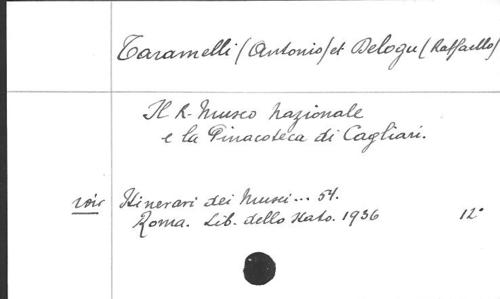 Taramelli (Antonio) et Delogu (Raffaello)
Il R. Museo Nazionale
e la Pinacoteca di Cagliari.
voir Itinerari dei Musei... 54.
Roma. Lib. dello Stato. 1936 12°